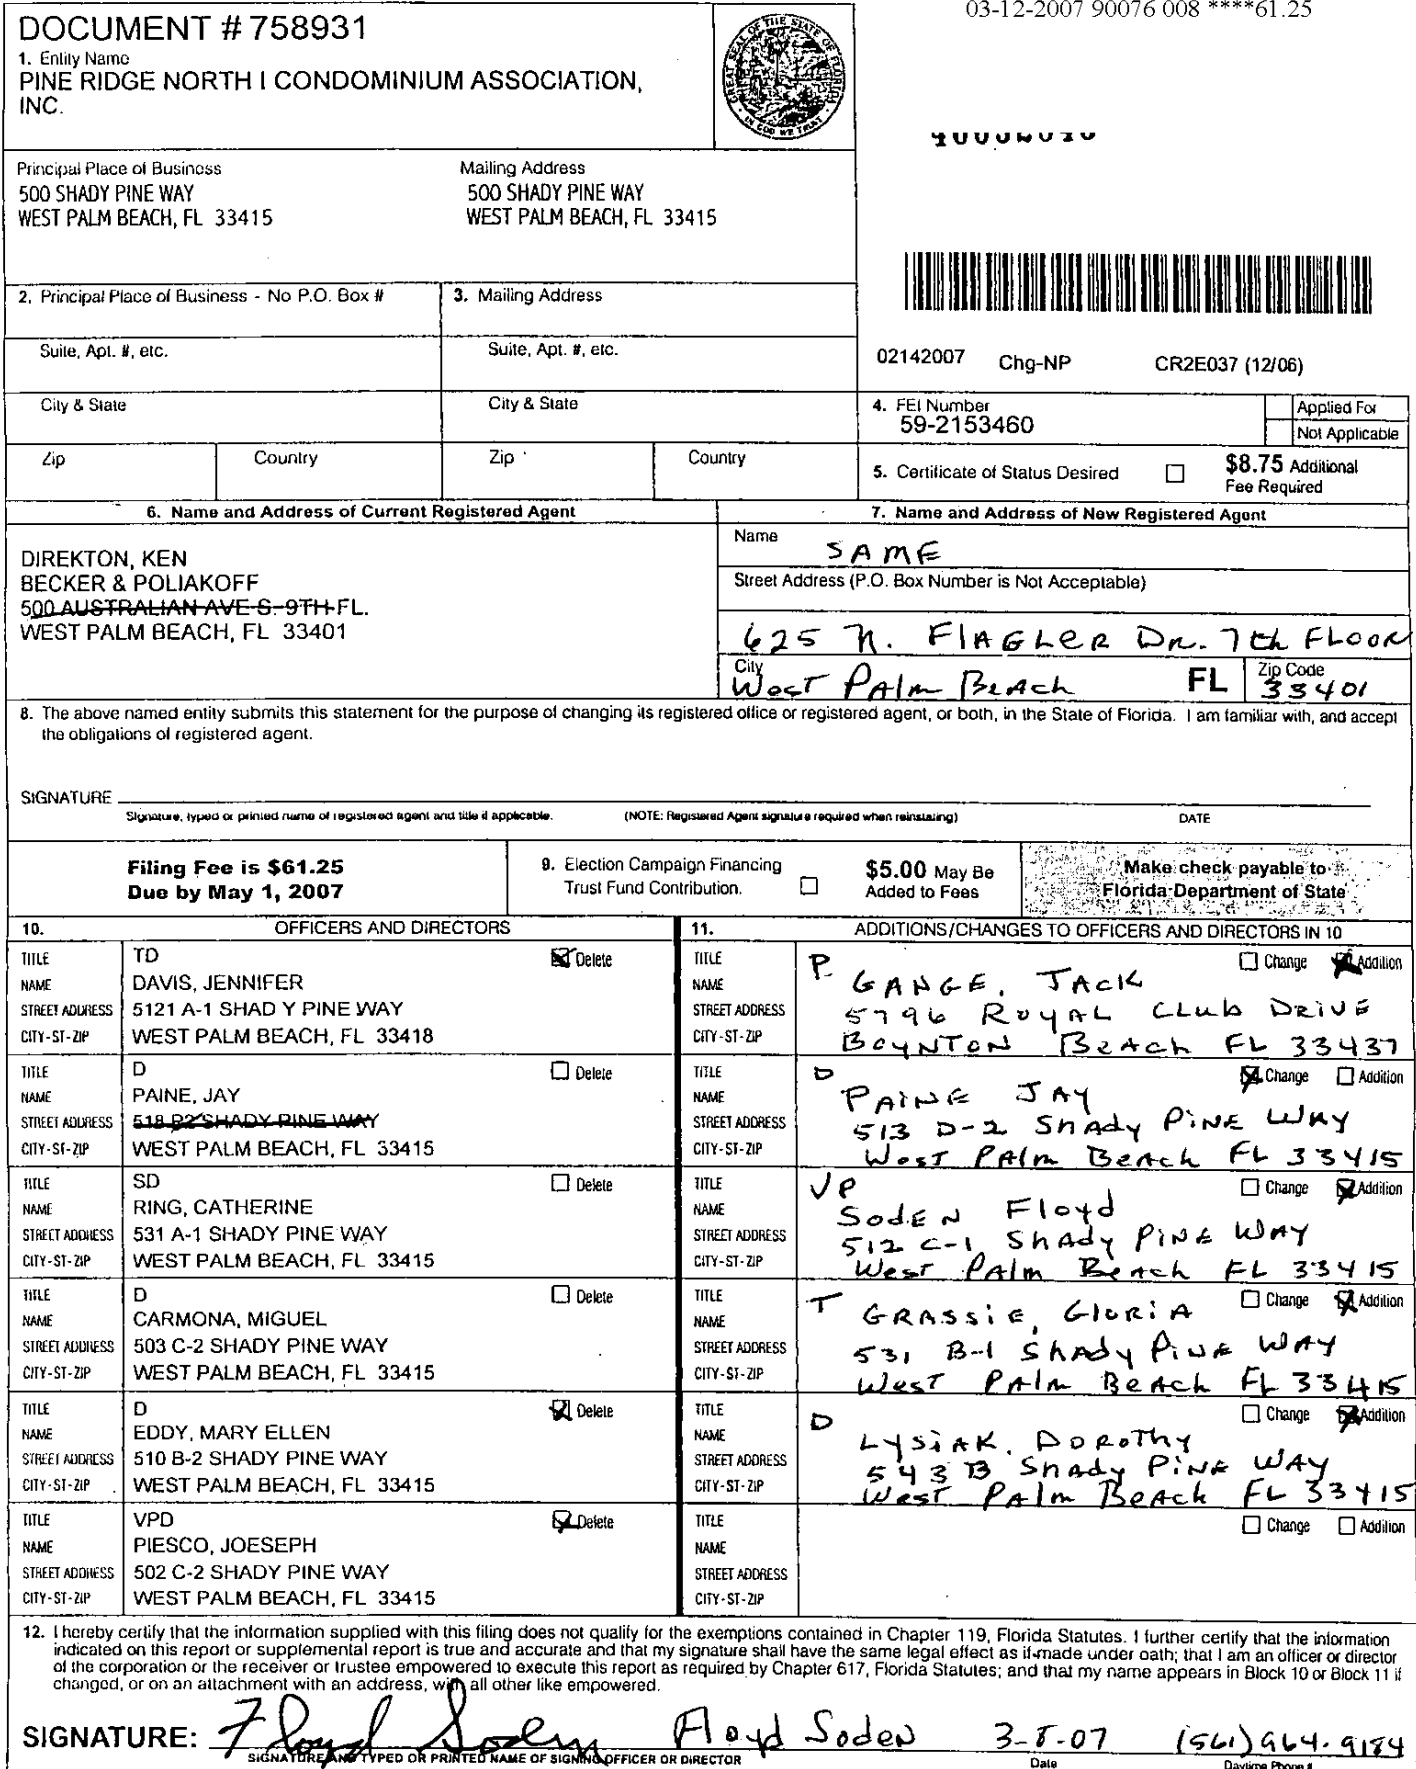 03-12-2007 90076 008 ****61.25
DOCUMENT # 758931
1. Entity Name
PINE RIDGE NORTH I CONDOMINIUM ASSOCIATION,
INC.
GREAT SEAL OF THE STATE OF FLORIDA
IN GOD WE TRUST
Principal Place of Business
500 SHADY PINE WAY
WEST PALM BEACH, FL 33415
Mailing Address
500 SHADY PINE WAY
WEST PALM BEACH, FL 33415
2. Principal Place of Business - No P.O. Box #
3. Mailing Address
Suite, Apt. #, etc.
Suite, Apt. #, etc.
02142007 Chg-NP CR2E037 (12/06)
City & State
City & State
4. FEI Number
59-2153460
Applied For
Not Applicable
Zip Country Zip Country
5. Certificate of Status Desired
$8.75 Additional
Fee Required
6. Name and Address of Current Registered Agent
DIREKTON, KEN
BECKER & POLIAKOFF
500 AUSTRALIAN AVE S. 9TH FL.
WEST PALM BEACH, FL 33401
7. Name and Address of New Registered Agent
Name
SAME
Street Address (P.O. Box Number is Not Acceptable)
625 N. FLAGLER DR. 7th FLOOR
City
West PALM BEACH FL Zip Code
33401
8. The above named entity submits this statement for the purpose of changing its registered office or registered agent, or both, in the State of Florida. I am familiar with, and accept
the obligations of registered agent.
SIGNATURE
Signature, typed or printed name of registered agent and title if applicable. (NOTE: Registered Agent signature required when reinstating) DATE
Filing Fee is $61.25
Due by May 1, 2007
9. Election Campaign Financing
Trust Fund Contribution.
$5.00 May Be
Added to Fees
Make check payable to
Florida Department of State
10. OFFICERS AND DIRECTORS
TITLE TD Delete
NAME DAVIS, JENNIFER
STREET ADDRESS 5121 A-1 SHAD Y PINE WAY
CITY-ST-ZIP WEST PALM BEACH, FL 33418
TITLE D Delete
NAME PAINE, JAY
STREET ADDRESS 518 B2 SHADY PINE WAY
CITY-ST-ZIP WEST PALM BEACH, FL 33415
TITLE SD Delete
NAME RING, CATHERINE
STREET ADDRESS 531 A-1 SHADY PINE WAY
CITY-ST-ZIP WEST PALM BEACH, FL 33415
TITLE D Delete
NAME CARMONA, MIGUEL
STREET ADDRESS 503 C-2 SHADY PINE WAY
CITY-ST-ZIP WEST PALM BEACH, FL 33415
TITLE D Delete
NAME EDDY, MARY ELLEN
STREET ADDRESS 510 B-2 SHADY PINE WAY
CITY-ST-ZIP WEST PALM BEACH, FL 33415
TITLE VPD Delete
NAME PIESCO, JOESEPH
STREET ADDRESS 502 C-2 SHADY PINE WAY
CITY-ST-ZIP WEST PALM BEACH, FL 33415
11. ADDITIONS/CHANGES TO OFFICERS AND DIRECTORS IN 10
TITLE P Change Addition
NAME GANGE, JACK
STREET ADDRESS 5796 ROYAL CLUB DRIVE
CITY-ST-ZIP BOYNTON BEACH FL 33437
TITLE D Change Addition
NAME PAINE JAY
STREET ADDRESS 513 D-2 SHADY PINE WAY
CITY-ST-ZIP West PALM BEACH FL 33415
TITLE VP Change Addition
NAME SODEN Floyd
STREET ADDRESS 512 C-1 SHADY PINE WAY
CITY-ST-ZIP West PALM BEACH FL 33415
TITLE T Change Addition
NAME GRASSIE, GLORIA
STREET ADDRESS 531 B-1 SHADY PINE WAY
CITY-ST-ZIP West PALM BEACH FL 33415
TITLE D Change Addition
NAME LYSIAK, DOROTHY
STREET ADDRESS 543 B SHADY PINE WAY
CITY-ST-ZIP West PALM BEACH FL 33415
TITLE Change Addition
NAME
STREET ADDRESS
CITY-ST-ZIP
12. I hereby certify that the information supplied with this filing does not qualify for the exemptions contained in Chapter 119, Florida Statutes. I further certify that the information
indicated on this report or supplemental report is true and accurate and that my signature shall have the same legal effect as if made under oath; that I am an officer or director
of the corporation or the receiver or trustee empowered to execute this report as required by Chapter 617, Florida Statutes; and that my name appears in Block 10 or Block 11 if
changed, or on an attachment with an address, with all other like empowered.
SIGNATURE: Floyd Soden Floyd Soden 3-8-07 (561) 964-9184
SIGNATURE AND TYPED OR PRINTED NAME OF SIGNING OFFICER OR DIRECTOR Date Daytime Phone #